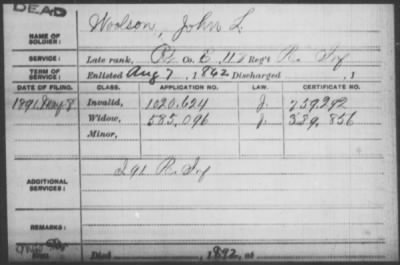 DEAD
NAME OF SOLDIER: Woolson, John L.
SERVICE: Late rank, Pt Co. E, 117 Reg't Pa. Inf
TERM OF SERVICE: Enlisted Aug 7, 1862 Discharged , 1
DATE OF FILING. CLASS. APPLICATION NO. LAW. CERTIFICATE NO.
1891 May 8 Invalid, 1020.624 J. 759.292
Widow, 585,096 J. 389,856
Minor,
ADDITIONAL SERVICES: I 91 Pa. Inf
REMARKS:
Died , 1892, at